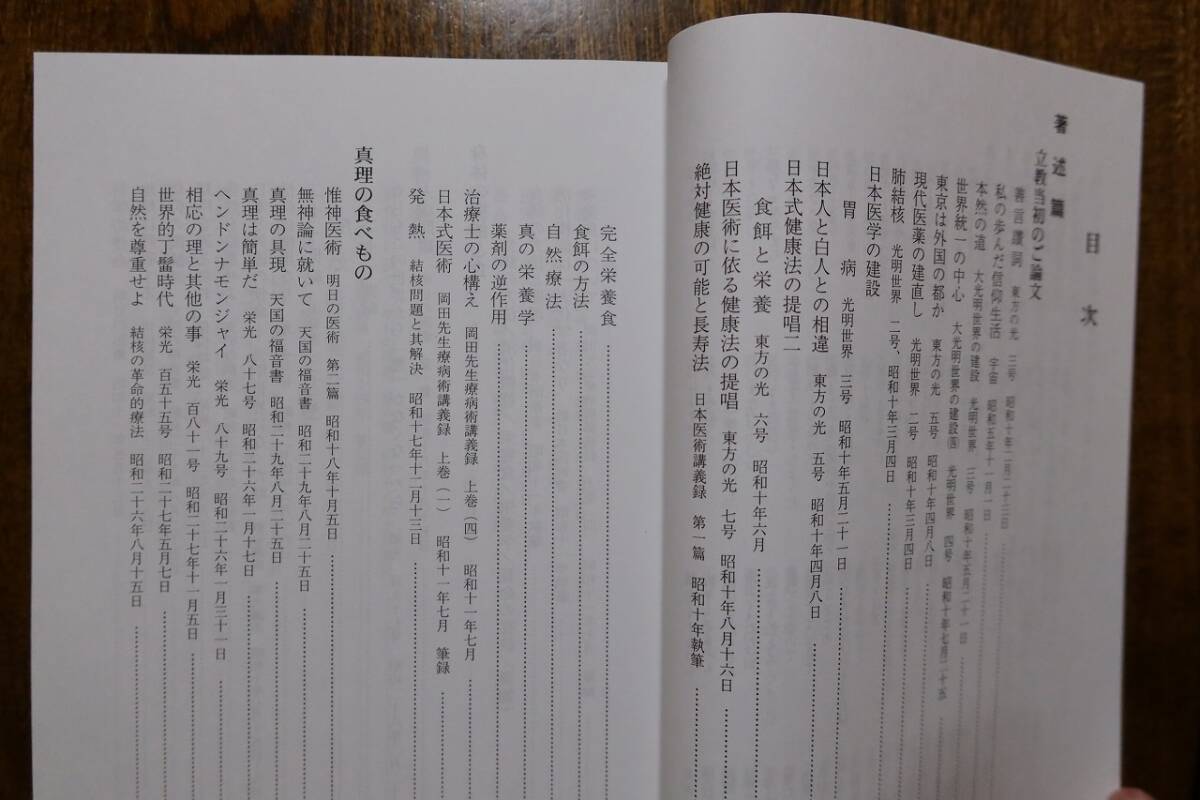 目次
著述篇
立教当初のご論文
善言讃詞 東方の光 三号 昭和十年二月二十三日
私の歩んだ信仰生活 宇宙 昭和五年十一月一日
本然の道 大光明世界の建設 光明世界 三号 昭和十年五月二十一日
世界統一の中心 大光明世界の建設(四) 光明世界 四号 昭和十年七月二十五
東京は外国の都か 東方の光 五号 昭和十年四月八日
現代医薬の建直し 光明世界 二号 昭和十年三月四日
肺結核 光明世界 二号、昭和十年三月四日
日本医学の建設
胃病 光明世界 三号 昭和十年五月二十一日
日本人と白人との相違 東方の光 五号 昭和十年四月八日
日本式健康法の提唱二
食餌と栄養 東方の光 六号 昭和十年六月
日本医術に依る健康法の提唱 東方の光 七号 昭和十年八月十六日
絶対健康の可能と長寿法 日本医術講義録 第一篇 昭和十年執筆
完全栄養食
食餌の方法
自然療法
真の栄養学
薬剤の逆作用
治療士の心構え 岡田先生療病術講義録 上巻(四) 昭和十一年七月
日本式医術 岡田先生療病術講義録 上巻(一) 昭和十一年七月 筆録
発熱 結核問題と其解決 昭和十七年十二月十三日
真理の食べもの
惟神医術 明日の医術 第二篇 昭和十八年十月五日
無神論に就いて 天国の福音書 昭和二十九年八月二十五日
真理の具現 天国の福音書 昭和二十九年八月二十五日
真理は簡単だ 栄光 八十七号 昭和二十六年一月十七日
ヘンドンナモンジャイ 栄光 八十九号 昭和二十六年一月三十一日
相応の理と其他の事 栄光 百八十一号 昭和二十七年十一月五日
世界的丁髷時代 栄光 百五十五号 昭和二十七年五月七日
自然を尊重せよ 結核の革命的療法 昭和二十六年八月十五日